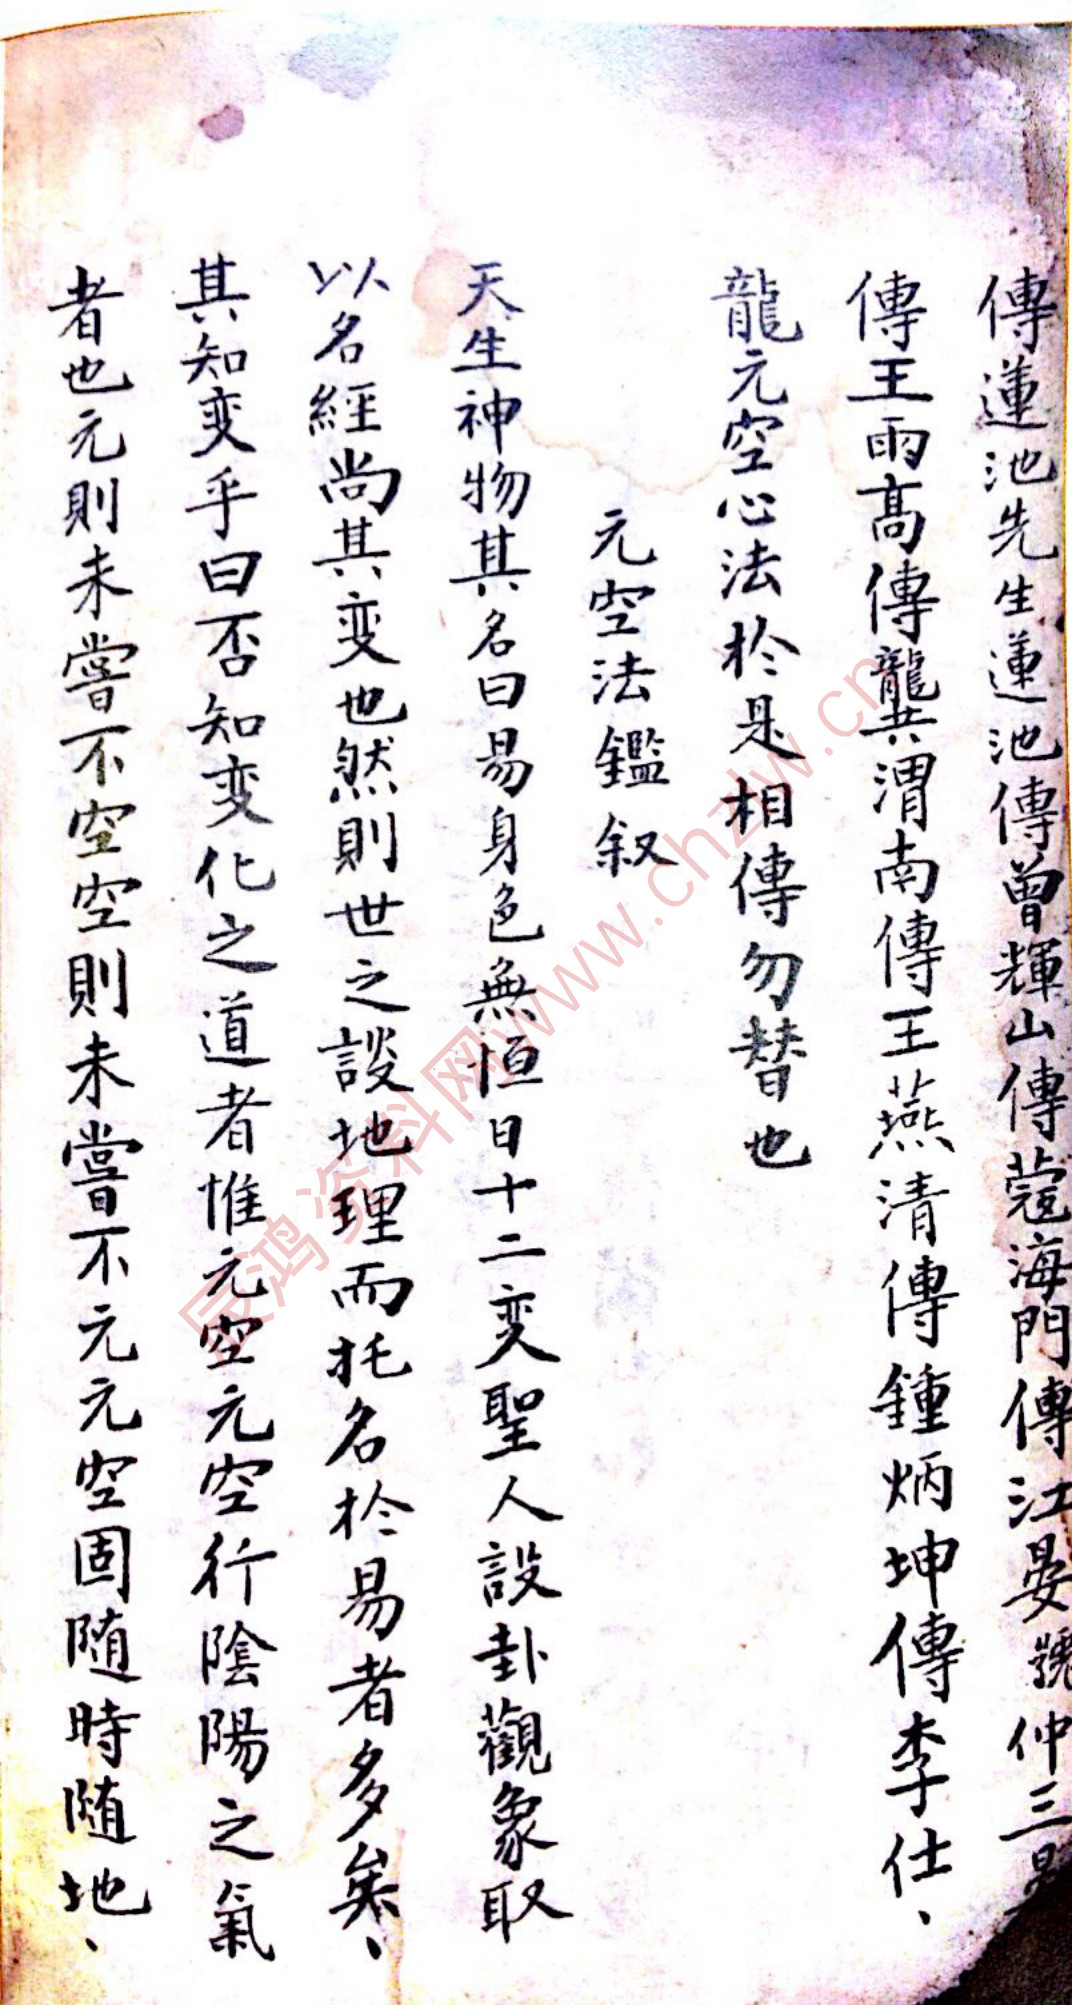 傳蓮池先生蓮池傳曾輝山傳蔻海門傳江晏號仲三
傳王雨高傳龔渭南傳王燕清傳鍾炳坤傳李仕、
龍元空心法於是相傳勿替也
元空法鑑叙
天生神物其名曰易身色無恒日十二变聖人設卦觀象取
以名經尚其变也然則世之談地理而托名於易者多矣、
其知变乎曰否知变化之道者惟元空元空行陰陽之氣
者也元則未嘗不空空則未嘗不元元空固随時随地、
辰鸿资料网www.chzlw.cn